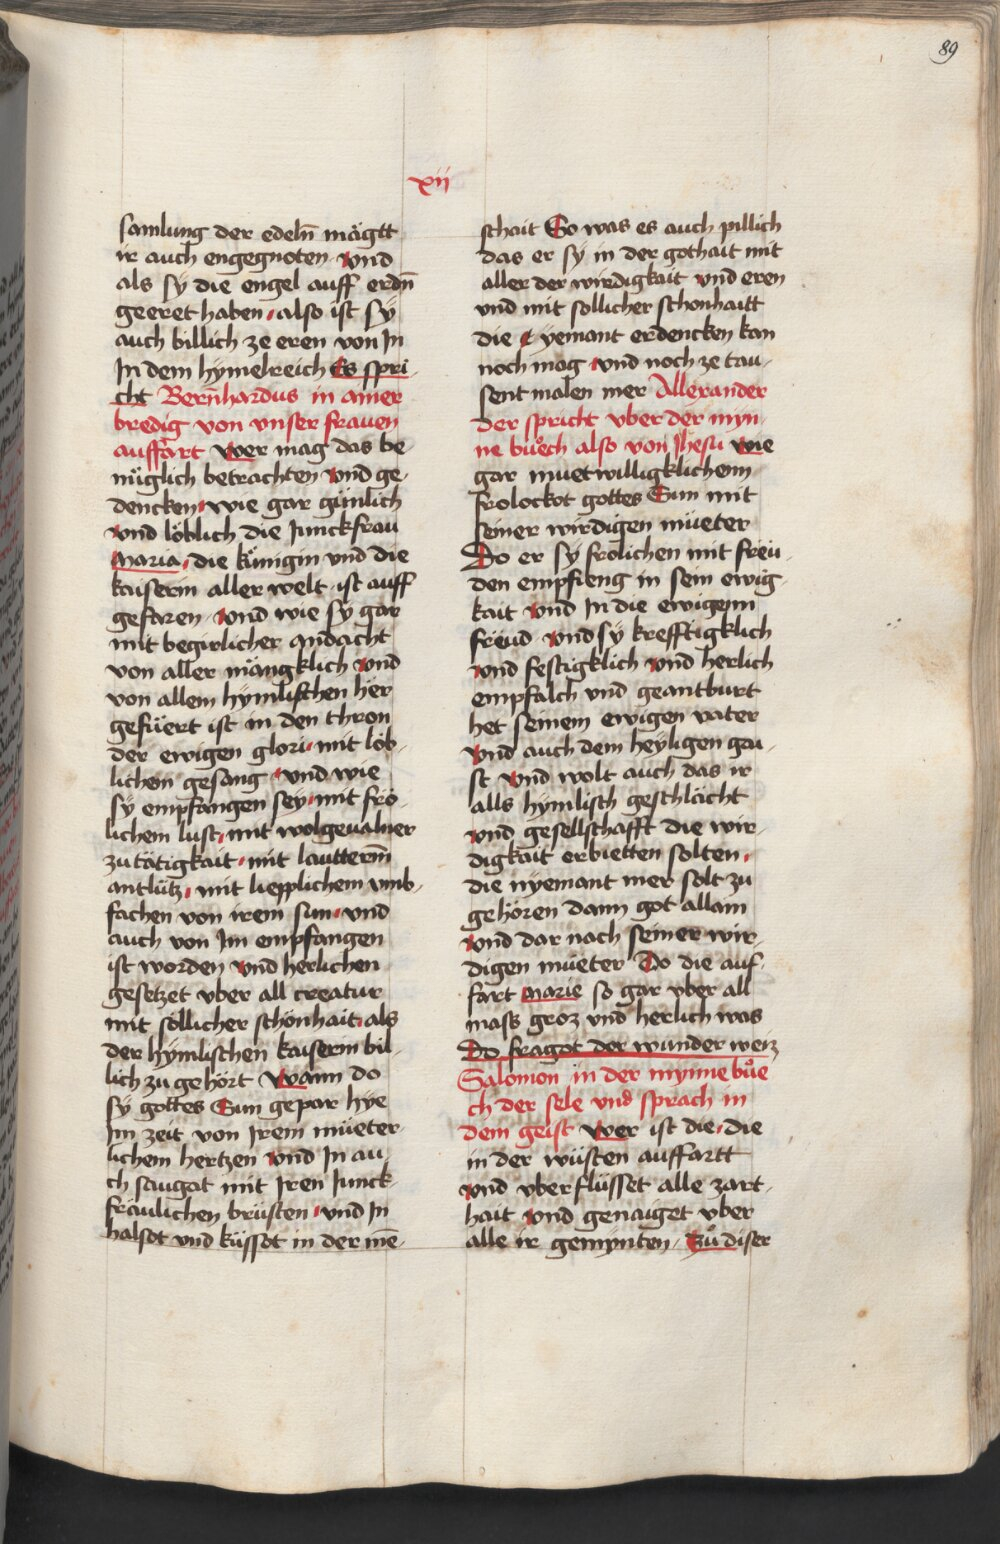 89
xij
samlung der edeln̄ mägtt
ir auch engegnoten vnd
als sÿ die engel auff erdn̄
geeret haben also ist sÿ
auch billich ze eren von In
In dem hÿmelreich Es spri
cht Bern̄hardus in ainer
bredig von vnser frauen
auffart Wer mag das be
müglich betrachten vnd ge
dencken wie gar günlich
vnd löblich die Junckfrau
maria die künigin vnd die
kaiserin aller welt ist auff
gefaren vnd wie sÿ gar
mit begirlicher andacht
von aller mängklich vnd
von allem hÿmlischen her
gefüert ist in den thron
der ewigen glori mit löb
lichem gesang vnd wie
sÿ empfangen seÿ mit frö
lichem lust mit wolgeualner
zutätigkait mit lautterm̄
antlütz mit liepplichem vmb
fachen von irem sun vnd
auch von Im empfangen
ist worden vnd herlichen
gesetzet vber all creatur
mit söllicher schönhait als
der hÿmlischen kaiserin bil
lich zu gehört Wann do
sÿ gottes Sun gepar hÿe
Im zeit von Irem müeter
lichem hertzen vnd In au
ch saugat mit Iren Junck
fräulichen brüsten vnd In
halsot vnd küssot in der mē
schait So was es auch pillich
das er sÿ in der gothait mit
aller der wirdigkait vnd eren
vnd mit sollicher schonhaitt
die yemant erdencken kan
noch mag vnd noch ze tau
sent malen mer Allexander
der spricht vber der mÿn
ne bůch also von Jhesu Wie
gar muetwilligklichem
frolockot gottes Sun mit
seiner wirdigen müeter
Do er sÿ frolichen mit freü
den empfieng in sein ewig
kait vnd In die ewigenn
freüd vnd sÿ krefftigklich
vnd festigklich vnd herlich
empfalch vnd geantburt
het seinem ewigen vater
vnd auch dem heÿligen gai
st vnd wolt auch das ir
alls hÿmlisch geschlächt
vnd gesellschafft die wir
digkait erbietten solten
die nÿemant mer solt zu
gehören dann got allain
vnd dar nach seiner wir
digen müeter Do die auf
fart marie so gar vber all
mass groz vnd herlich was
Do fragot der wunder weiz
Salomon in der mÿnne bůe
ch der sele vnd sprach in
dem geist Wer ist die die
in der wüsten auffartt
vnd vberflüsset alle zart
hait vnd genaiget vber
alle ir gemÿnten Zů diser